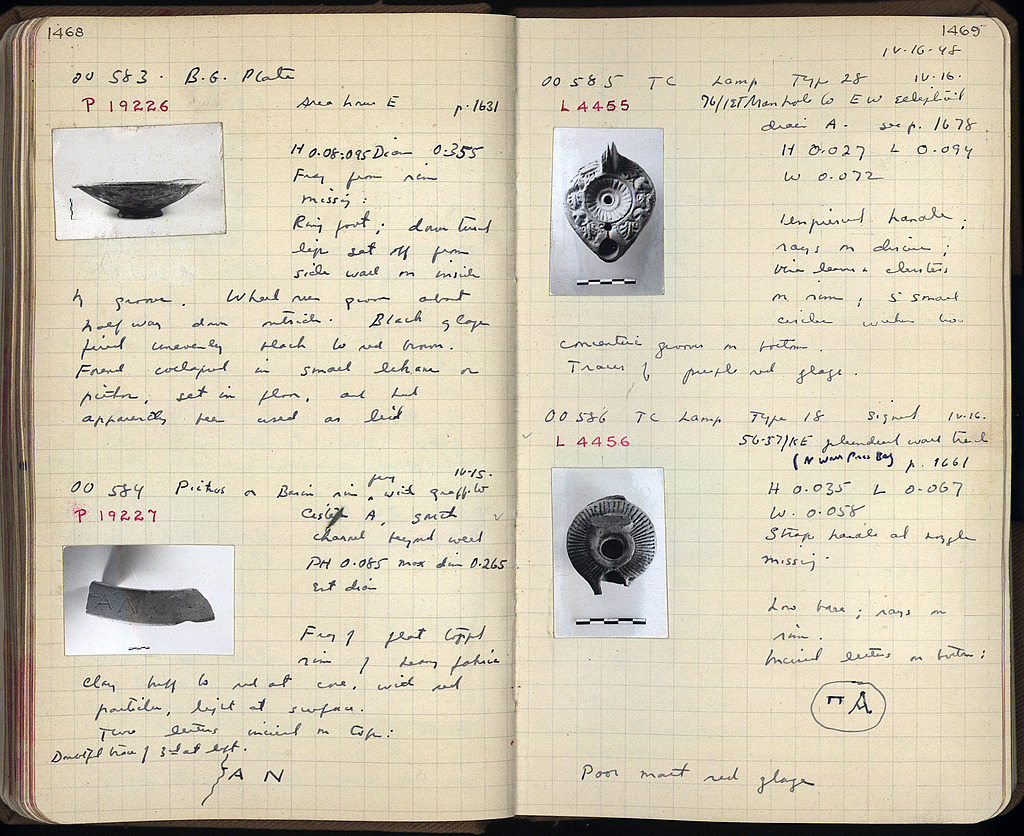 1468
OO 583. B.G. Plate
P 19226
Area house E p. 1631
H 0.08-.095 Diam 0.355
Frag from rim
missing:
Ring foot; down turned
lip set off from
side wall on inside
by groove. Wheel run groove about
half way down outside. Black glaze
fired unevenly black to red brown.
Found collapsed in small lekane or
pithos, set in floor, and had
apparently been used as lid
IV-15.
OO 584 Pithos or Basin rim frag with graffito
P 19227
Cistern A, south
channel beyond well
PH 0.085 max dim 0.265
Est diam
Frag of flat topped
rim of heavy fabric
Clay buff to red at core, with red
particles, light at surface.
Two letters incised on top:
Doubtful trace of 3rd at left.
A N
1469
IV-16-48
OO 585 TC Lamp Type 28 IV-16.
L 4455
76/ΙΣΤ Manhole to E W
drain A. see p. 1678.
H 0.027 L 0.094
W 0.072
Unpierced handle;
rays on discus;
vine leaves & clusters
on rim; 5 small
circles within two
concentric grooves on bottom.
Traces of purple red glaze.
OO 586 TC Lamp Type 18 Signed IV-16.
L 4456
56-57/ΚΕ wall trench
(N Wall Pres Bag) p. 1661
H 0.035 L 0.067
W. 0.058
Strap handle and nozzle
missing:
Low base; rays on
rim.
Incised letters on bottom:
ΠΑ
Poor matt red glaze